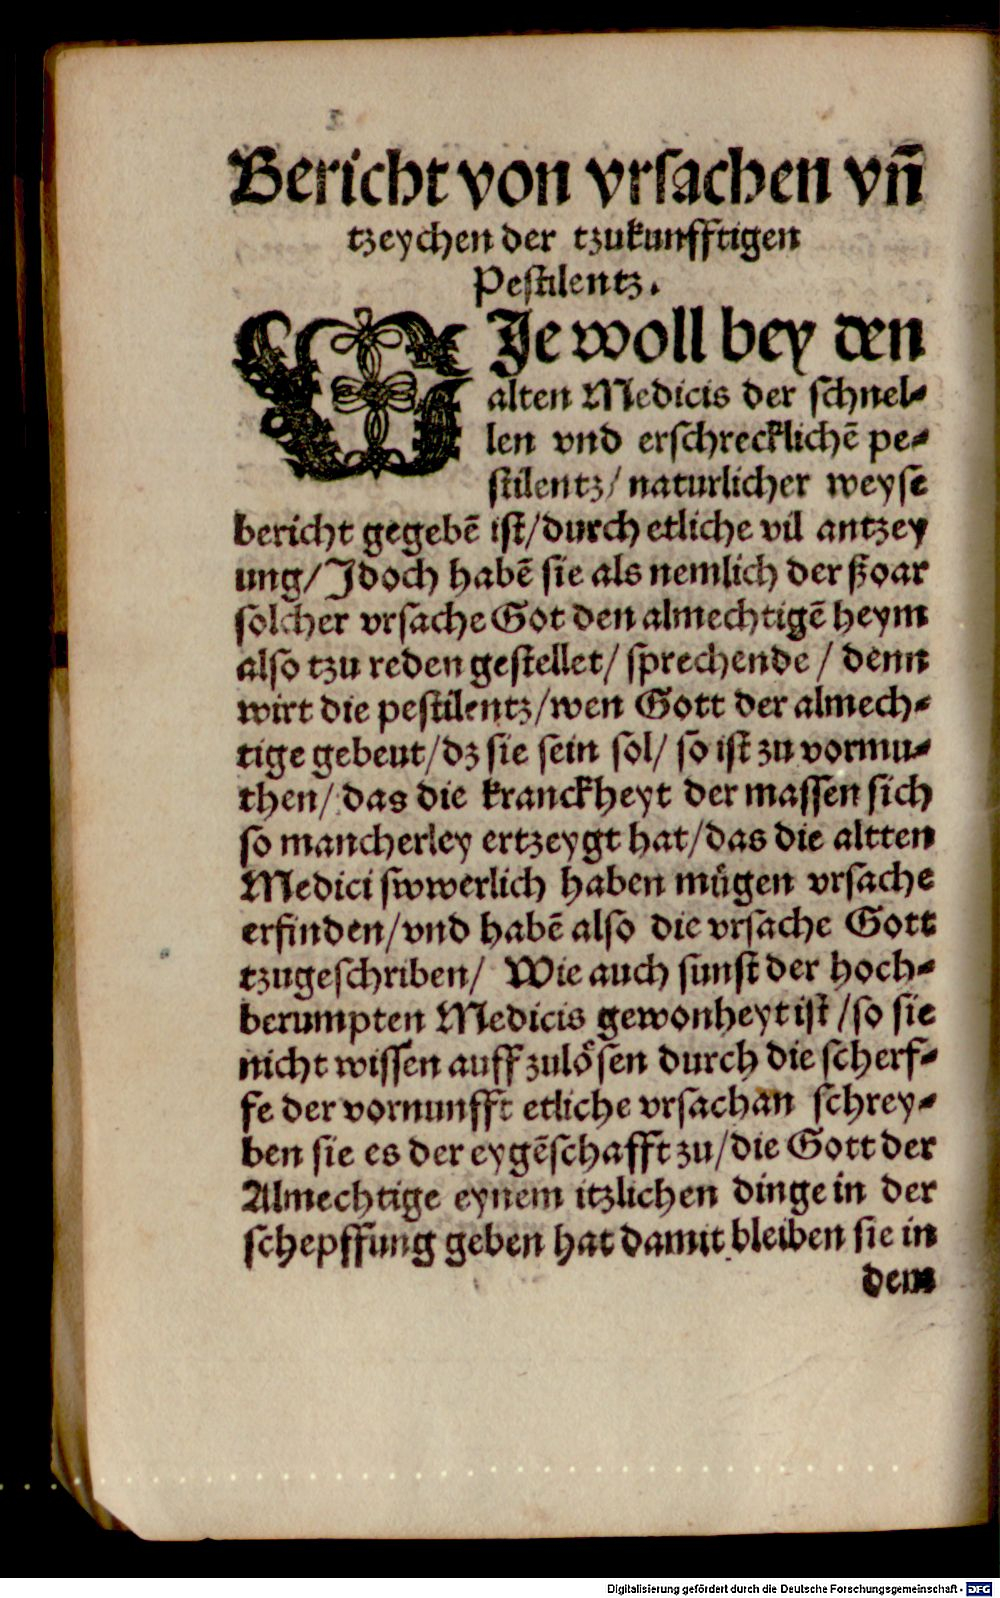 Bericht von vrsachen vñ
tzeychen der tzukunfftigen
Pestilentz.
WJe woll bey den
alten Medicis der schnel-
len vnd erschrecklichē pe-
stilentz/ naturlicher weyse
bericht gegebē ist/durch etliche vil antzey
ung/Jdoch habē sie als nemlich der ßoar
solcher vrsache Got den almechtigē heym
also tzu reden gestellet/ sprechende / denn
wirt die pestilentz/wen Gott der almech-
tige gebeut/dz sie sein sol/ so ist zu vormu-
then/ das die kranckheyt der massen sich
so mancherley ertzeygt hat/das die altten
Medici swwerlich haben mügen vrsache
erfinden/vnd habē also die vrsache Gott
tzugeschriben/ Wie auch sunst der hoch-
berumpten Medicis gewonheyt ist /so sie
nicht wissen auff zulösen durch die scherf-
fe der vornunfft etliche vrsachan schrey-
ben sie es der eygēschafft zu/die Gott der
Almechtige eynem itzlichen dinge in der
schepffung geben hat damit bleiben sie in
dem
Digitalisierung gefördert durch die Deutsche Forschungsgemeinschaft - DFG